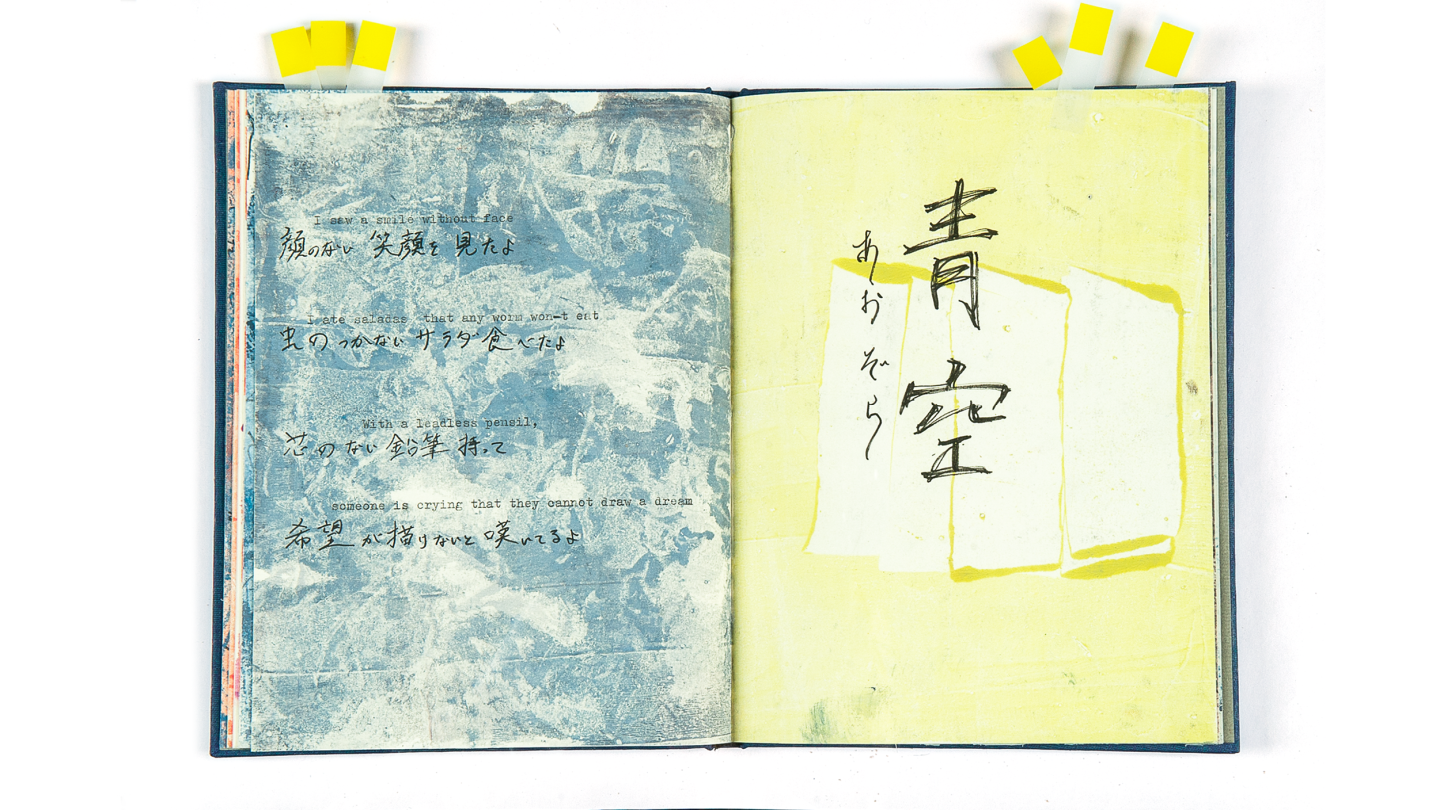 I saw a smile without face
顔のない 笑顔を 見たよ
I ate saladas that any worm won-t eat
虫の つかない サラダ 食べたよ
With a leadless pensil,
芯のない 鉛筆 持って
someone is crying that they cannot draw a dream
希望が描けないと 嘆いてるよ
青空
あおぞら